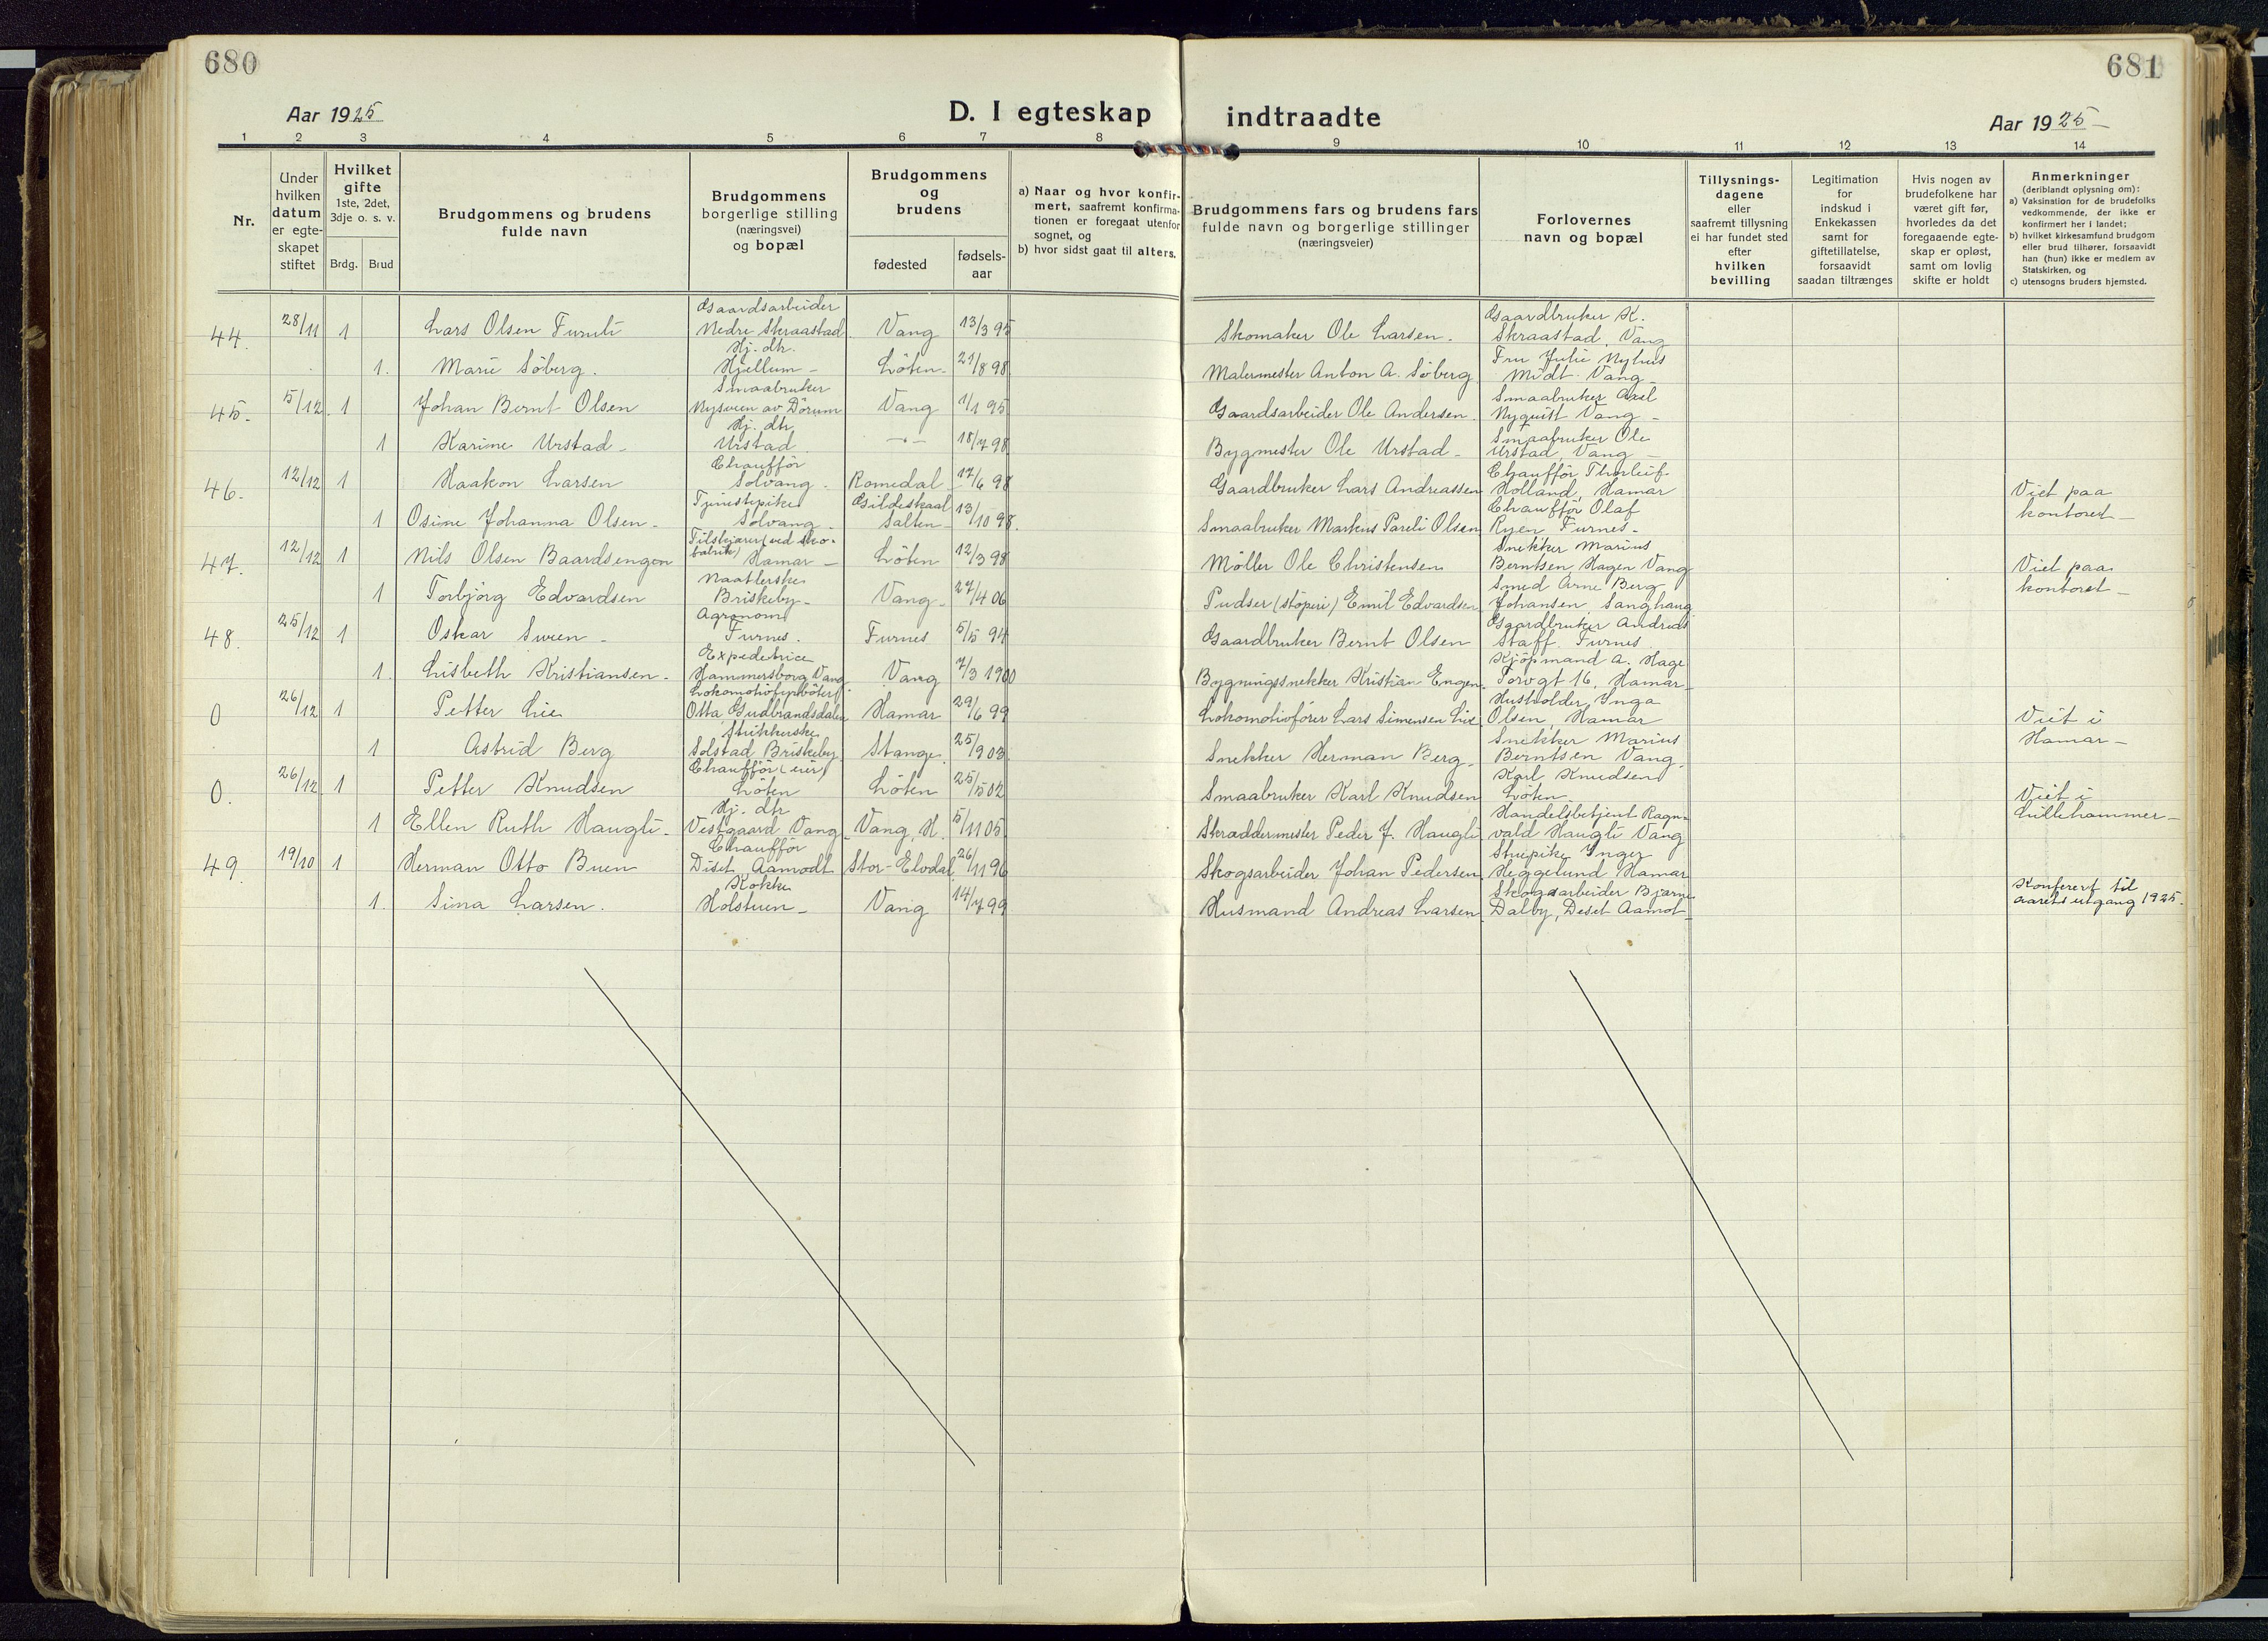 680
681
Aar 1925
D. I egteskap indtraadte
Aar 1925
1 2 3 4 5 6 7 8 9 10 11 12 13 14
Nr.
Under hvilken datum er egteskapet stiftet
Hvilket gifte 1ste, 2det, 3dje o. s. v.
Brdg. Brud
Brudgommens og brudens fulde navn
Brudgommens borgerlige stilling (næringsvei) og bopæl
Brudgommens og brudens
fødested
fødselsaar
a) Naar og hvor konfirmert, saafremt konfirmationen er foregaat utenfor sognet, og
b) hvor sidst gaat til alters.
Brudgommens fars og brudens fars fulde navn og borgerlige stillinger (næringsveier)
Forlovernes navn og bopæl
Tillysningsdagene eller saafremt tillysning ei har fundet sted efter hvilken bevilling
Legitimation for indskud i Enkekassen samt for giftetillatelse, forsaavidt saadan tiltrænges
Hvis nogen av brudefolkene har været gift før, hvorledes da det foregaaende egteskap er opløst, samt om lovlig skifte er holdt
Anmerkninger (deriblandt oplysning om):
a) Vaksination for de brudefolks vedkommende, der ikke er konfirmert her i landet;
b) hvilket kirkesamfund brudgom eller brud tilhører, forsaavidt han (hun) ikke er medlem av Statskirken, og
c) utensogns bruders hjemsted.
44. 28/11 1 Lars Olsen Furuli Gaardsarbeider Nedre Skraastad Vang 13/3 95 Skomaker Ole Larsen. Gaardbruker K. Skraastad, Vang
1. Marie Söberg. Hj. dtr. Hjellum - Löten - 21/8 98 Malermester Anton A. Söberg Fru Julie Nyhus Midt-Vang -
45. 5/12 1 Johan Bernt Olsen Smaabruker Nysveen av Dörum Vang 1/1 95 Gaardsarbeider Ole Andersen. Smaabruker Axel Nyquist Vang -
1 Karine Urstad - Hj. dtr. Urstad -"- 18/7 98 Bygmester Ole Urstad - Smaabruker Ole Urstad, Vang -
46. 12/12 1 Haakon Larsen Chaufför Solvang - Romedal - 17/6 98 Gaardbruker Lars Andreassen Chaufför Thorleif Holland, Hamar Viet paa kontoret -
1 Osine Johanna Olsen - Tjenestepike Solvang - Gildeskaal Salten - 13/10 98. Smaabruker Markus Pareli Olsen Chaufför Olaf Ryen Furnes -
47. 12/12 1 Nils Olsen Baardsengen Tilskjærer (ved skofabrik) Hamar - Löten 12/3 98 Möller Ole Christensen Snekker Marius Berntsen Hagen Vang Viet paa kontoret -
1 Torbjörg Edvardsen Naatlerske Briskeby - Vang - 27/4 06 Pudser (stöperi) Emil Edvardsen Smed Arne Berg Johansen Sanghaug
48. 25/12 1 Oskar Sveen - Agronom Furnes. Furnes 5/5 94 Gaardbruker Bernt Olsen Gaardbruker Andreas Staff. Furnes
1. Lisbeth Kristiansen - Expeditrice Hammersborg Vang Vang 7/3 1900 Bygningssnekker Kristian Engen. Kjöpmand A. Hage Torvgt 16, Hamar -
0 26/12 1 Petter Lie Lokomotivfyrböter Otta, Gudbrandsdalen Hamar 29/6 99 Lokomotivförer Lars Simensen Lie Husholder Inga Olsen, Hamar Viet i Hamar -
1 Astrid Berg Strikkerske Solstad, Briskeby Stange 25/9 03. Snekker Herman Berg. Snekker Marius Berntsen Vang.
0. 26/12 1 Petter Knudsen Chaufför (eier) Löten Löten 25/5 02 Smaabruker Karl Knudsen Karl Knudsen Löten Viet i Lillehammer -
1 Ellen Ruth Haugli - Hj. dtr Vestgaard Vang Vang, H. 5/11 05 Skreddermester Peder J. Haugli Handelsbetjent Ragnvald Haugli Vang
49. 19/10 1 Herman Otto Buen Chaufför Diset Aamodt Stor-Elvdal 26/11 96 Skogsarbeider Johan Pedersen Stuepike Inger Heggelund Hamar
1. Sina Larsen. Kokke Holstuen - Vang 14/7 99 Husmand Andreas Larsen Skogsarbeider Bjarne Dalby, Deset Aamot - Konferert til aarets utgang 1925.